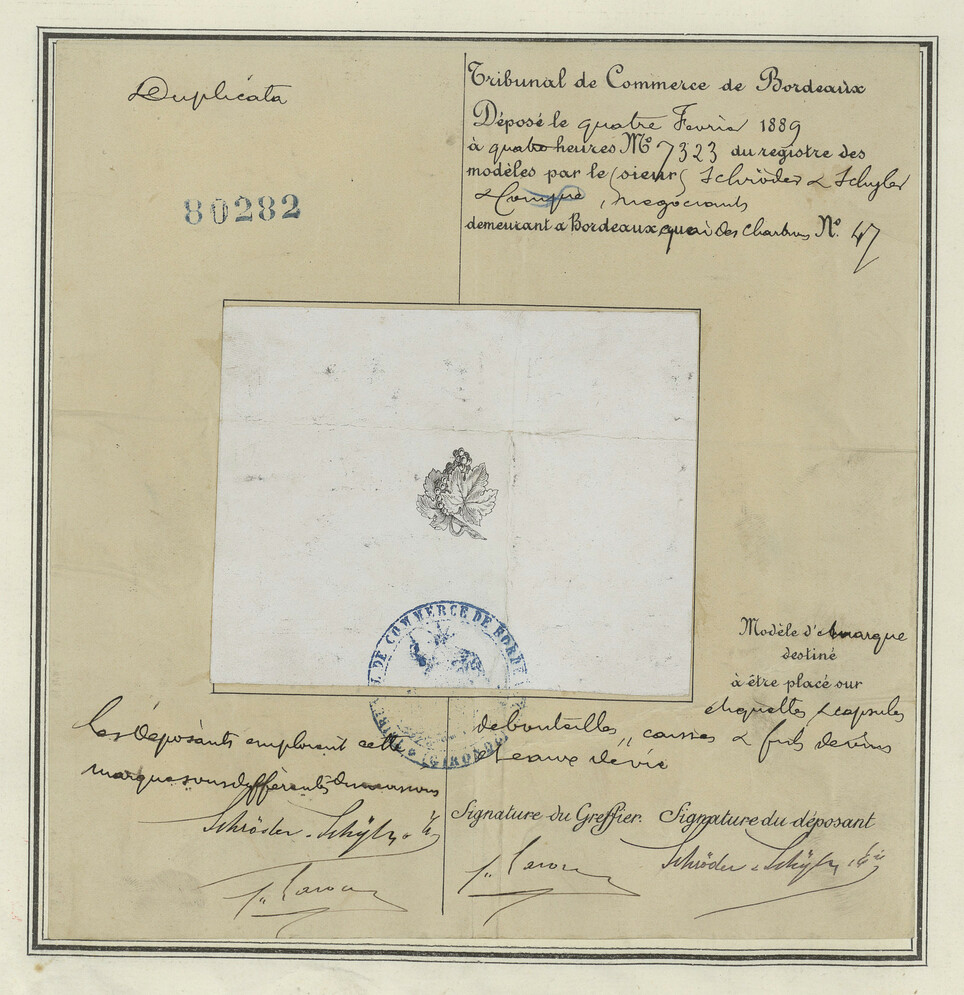 Duplicata
80282
Tribunal de Commerce de Bordeaux
Déposé le quatre Fevrier 1889
à quatre heures No 7323 du registre des
modèles par le sieur Schröder & Schyler
& Compie, négociants
demeurant a Bordeaux quai des Chartrons No. 47
Modèle de marque
destiné
à être placé sur
étiquettes & capsules
de bouteilles, caisses & futs de vins
et eaux de vie
DE COMMERCE DE BORDE
GIRONDE
les déposants emploient cette
marque sous différentes dimensions
Schröder & Schÿler & Cie
Signature du Greffier. Signature du déposant
Schröder & Schÿler & Cie